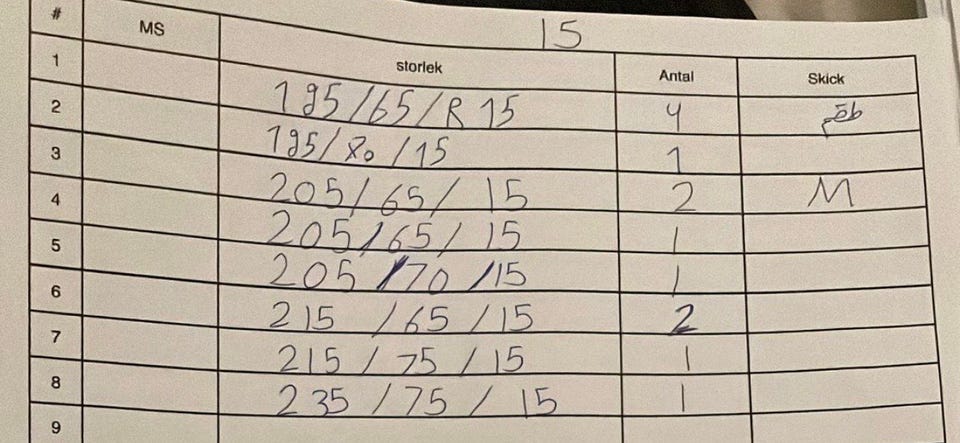 15
# MS storlek Antal Skick
1
2 195/65/R 15 4 طقم
3 195/80/15 1
4 205/65/ 15 2 M
5 205/65/ 15 1
6 205/70/15 1
7 215/65/15 2
8 215/75/15 1
9 235/75/ 15 1